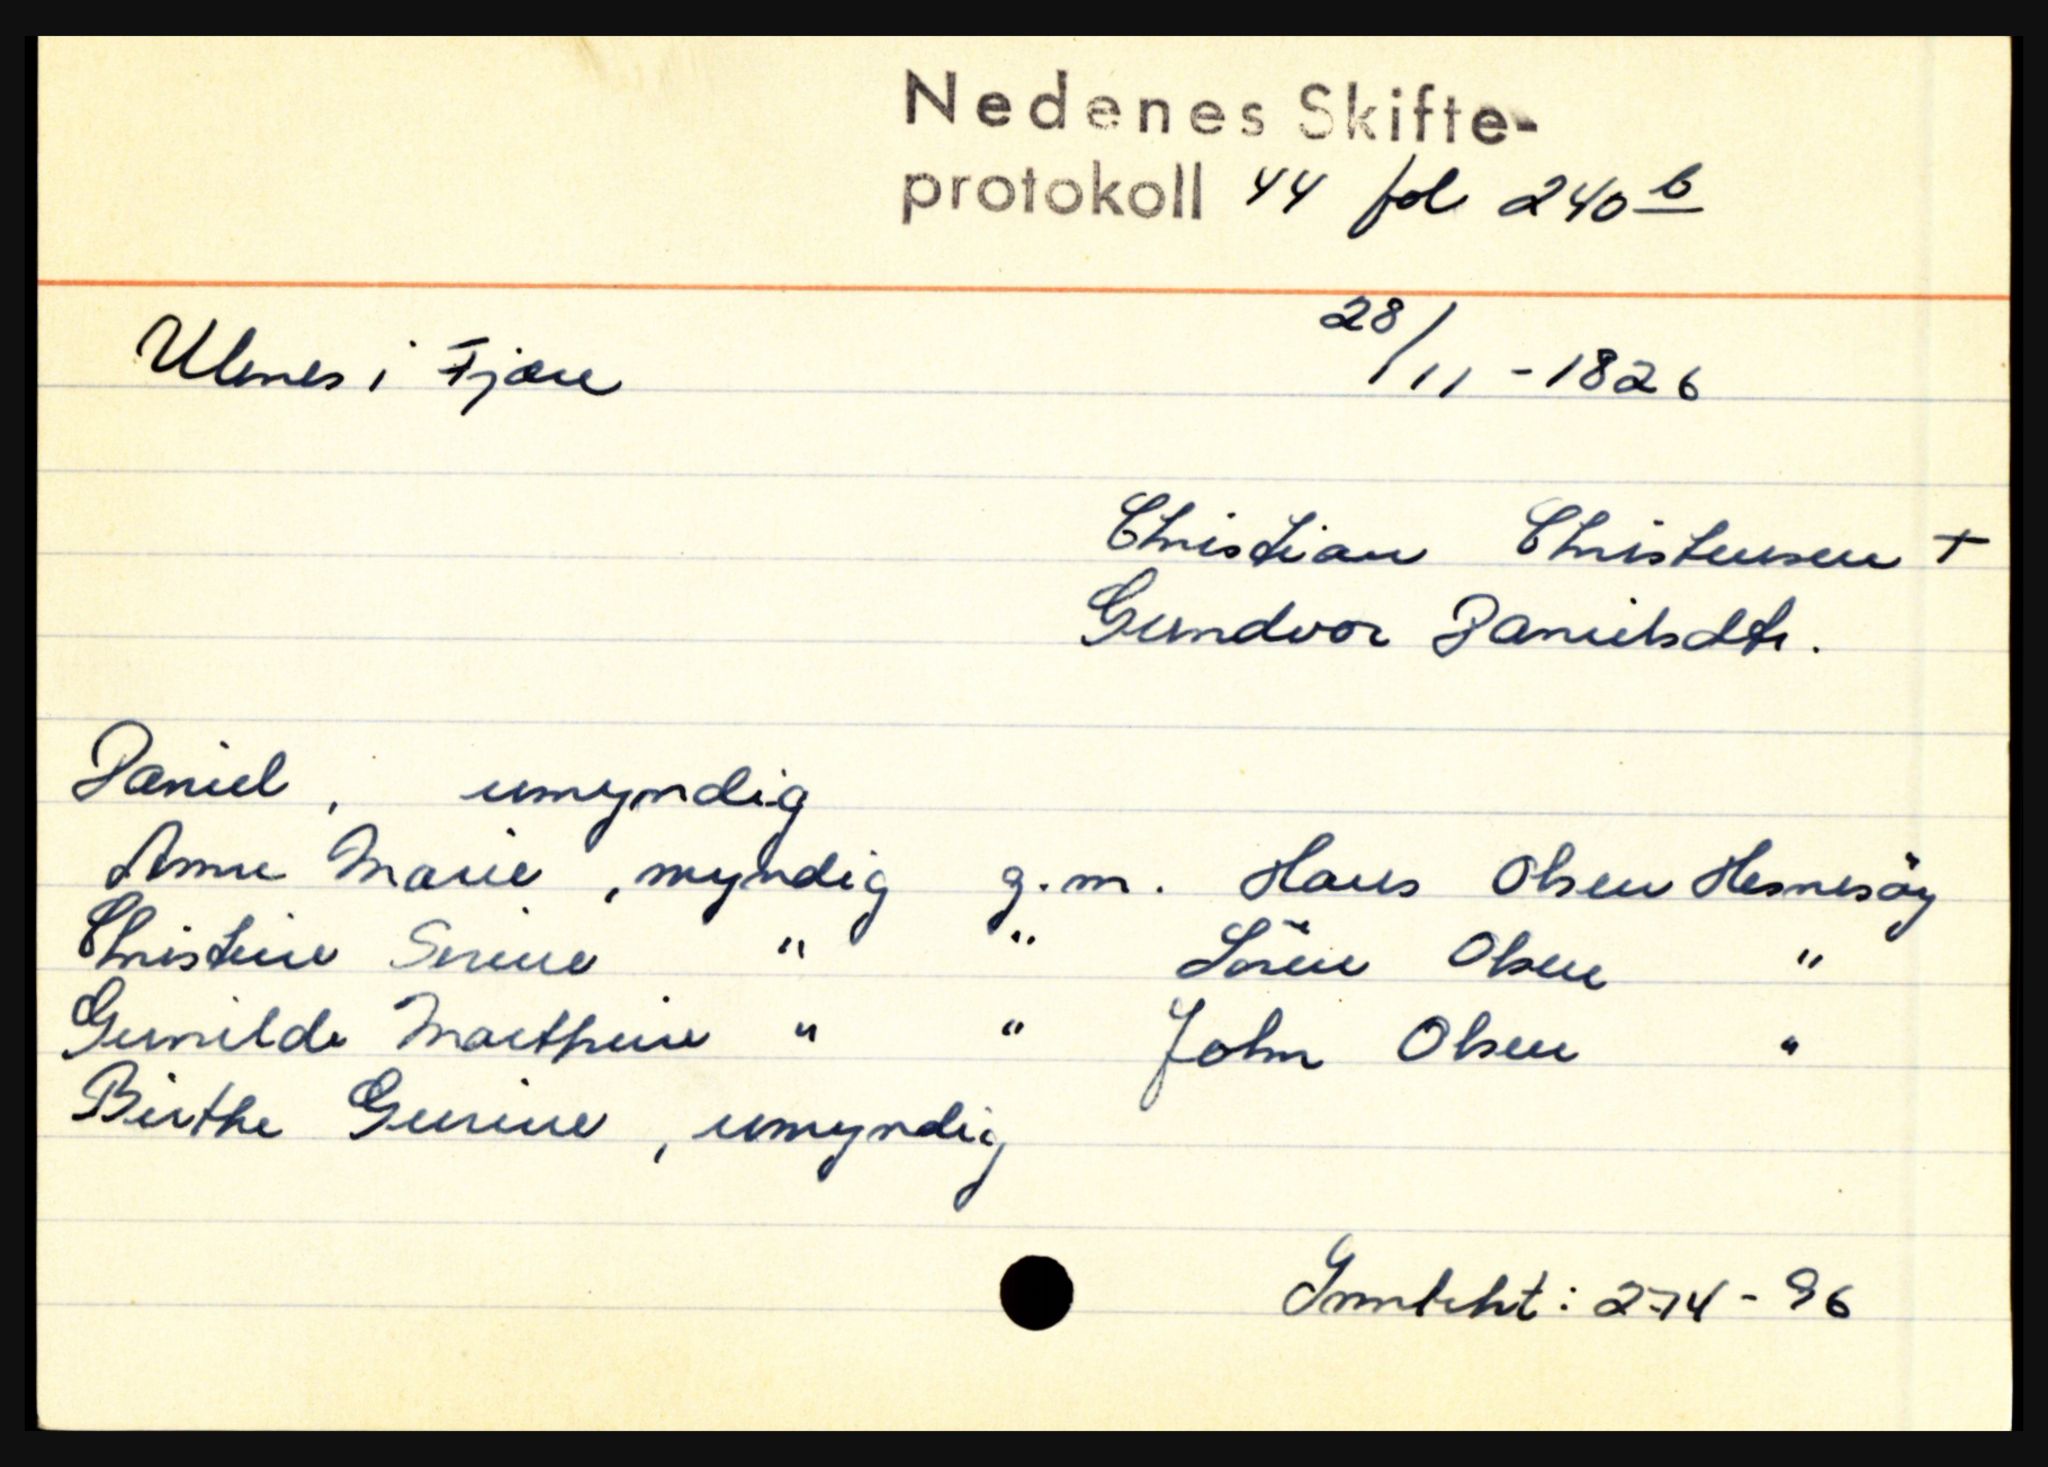 Nedenes Skifte-
protokoll 44 fol 240 b
Ulenes i Fjære 28/11 - 1826
Christian Christensen +
Gundvor Danielsdtr.
Daniel, umyndig
Anne Marie, myndig g.m. Hans Olsen Hesnesöy
Christine Serine " " Sören Olsen "
Gunilde Marthine " " John Olsen "
Birthe Gurine, umyndig
: 274 - 96